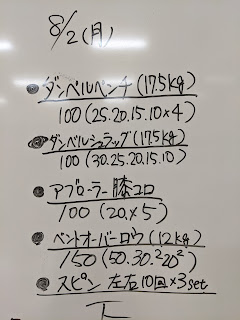 8/2(月)
● ダンベルベンチ(17.5kg)
100(25.20.15.10×4)
● ダンベルシュラッグ(17.5kg)
100(30.25.20.15.10)
● アブローラー膝コロ
100(20×5)
● ベントオーバーロウ(12kg)
150(50.30.²20²)
● スピン 左右10回×3set
下